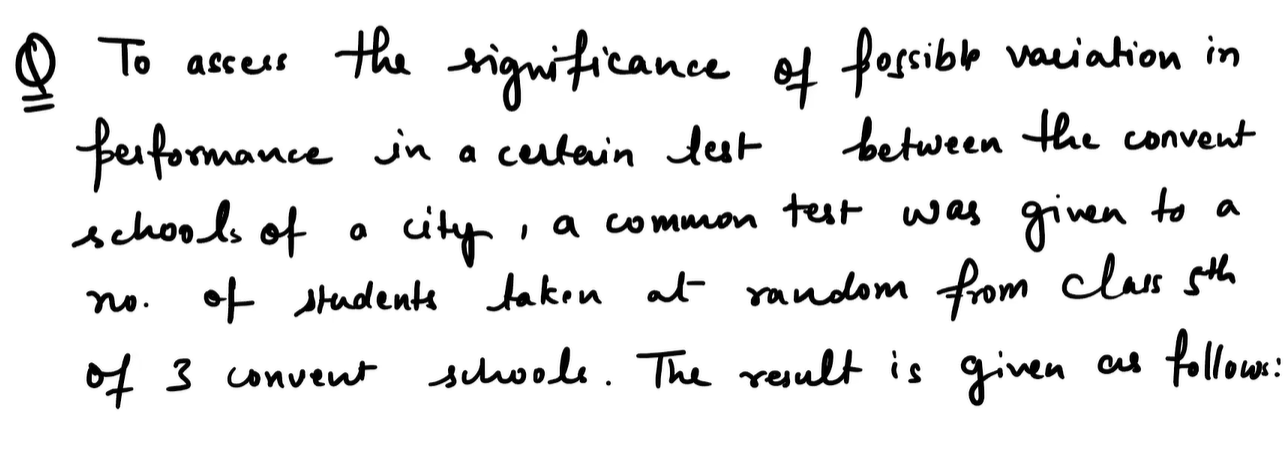 Q To assess the significance of possible variation in
performance in a certain test between the convent
schools of a city, a common test was given to a
no. of students taken at random from class 5th
of 3 convent schools. The result is given as follows: